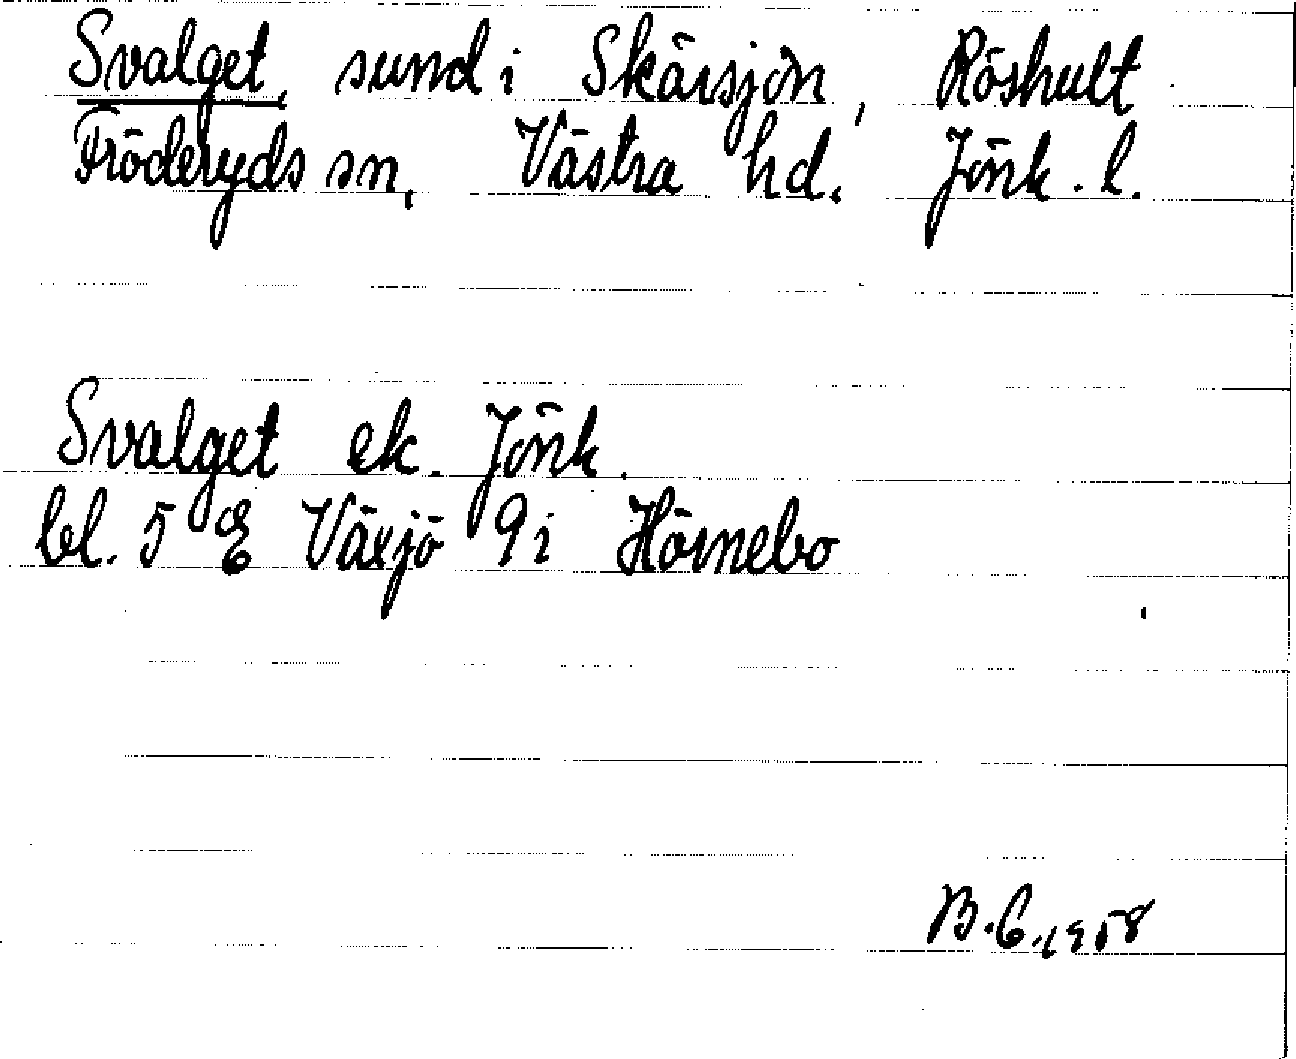 Svalget, sund i Skärsjön, Röshult
Fröderyds sn, Västra hd. Jönk. l.
Svalget ek. Jönk.
bl. 5 E Växjö 9 i Hörnebo
B.C. 1958